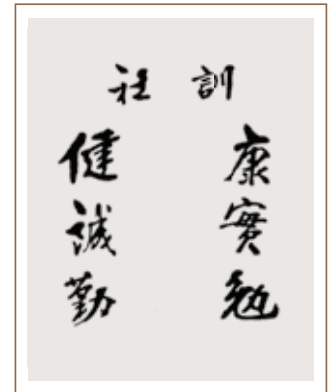 社訓
健康
誠實
勤勉